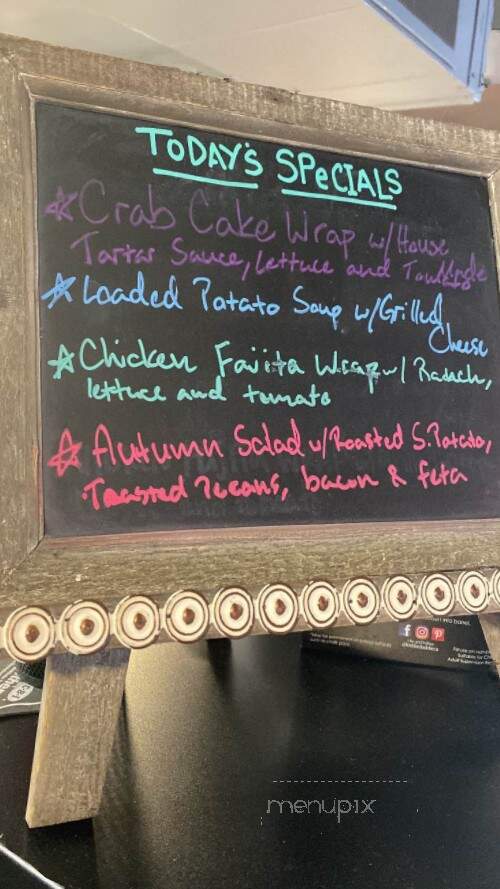 TODAY'S SPECIALS
Crab Cake Wrap w/House
Tartar Sauce, Lettuce and
Loaded Potato Soup w/Grilled
Cheese
Chicken Fajita Wrap w/ Ranch,
lettuce and tomato
Autumn Salad w/Roasted S.Potato,
Toasted Pecans, bacon & feta
menupix